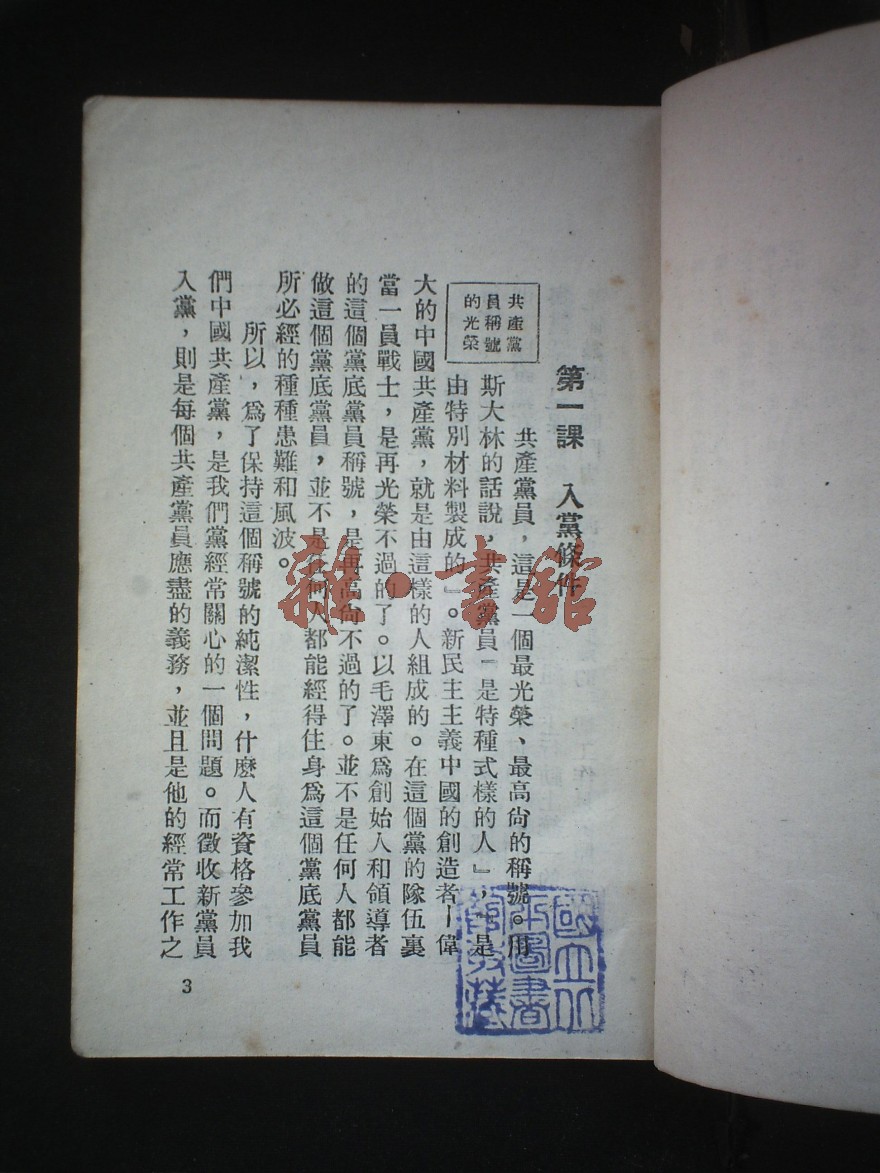 第一課　入黨條件
共產黨
員稱號
的光榮
共產黨員，這是一個最光榮、最高尙的稱號。用
斯大林的話說，共產黨員『是特種式樣的人』，『是
由特別材料製成的』。新民主主義中國的創造者—偉
大的中國共產黨，就是由這樣的人組成的。在這個黨的隊伍裏
當一員戰士，是再光榮不過的了。以毛澤東爲創始人和領導者
的這個黨底黨員稱號，是再高尙不過的了。並不是任何人都能
做這個黨底黨員，並不是任何人都能經得住身爲這個黨底黨員
所必經的種種患難和風波。
所以，爲了保持這個稱號的純潔性，什麽人有資格參加我
們中國共產黨，是我們黨經常關心的一個問題。而徵收新黨員
入黨，則是每個共產黨員應盡的義務，並且是他的經常工作之
3
雜·書館
國立北
平圖書
館收藏